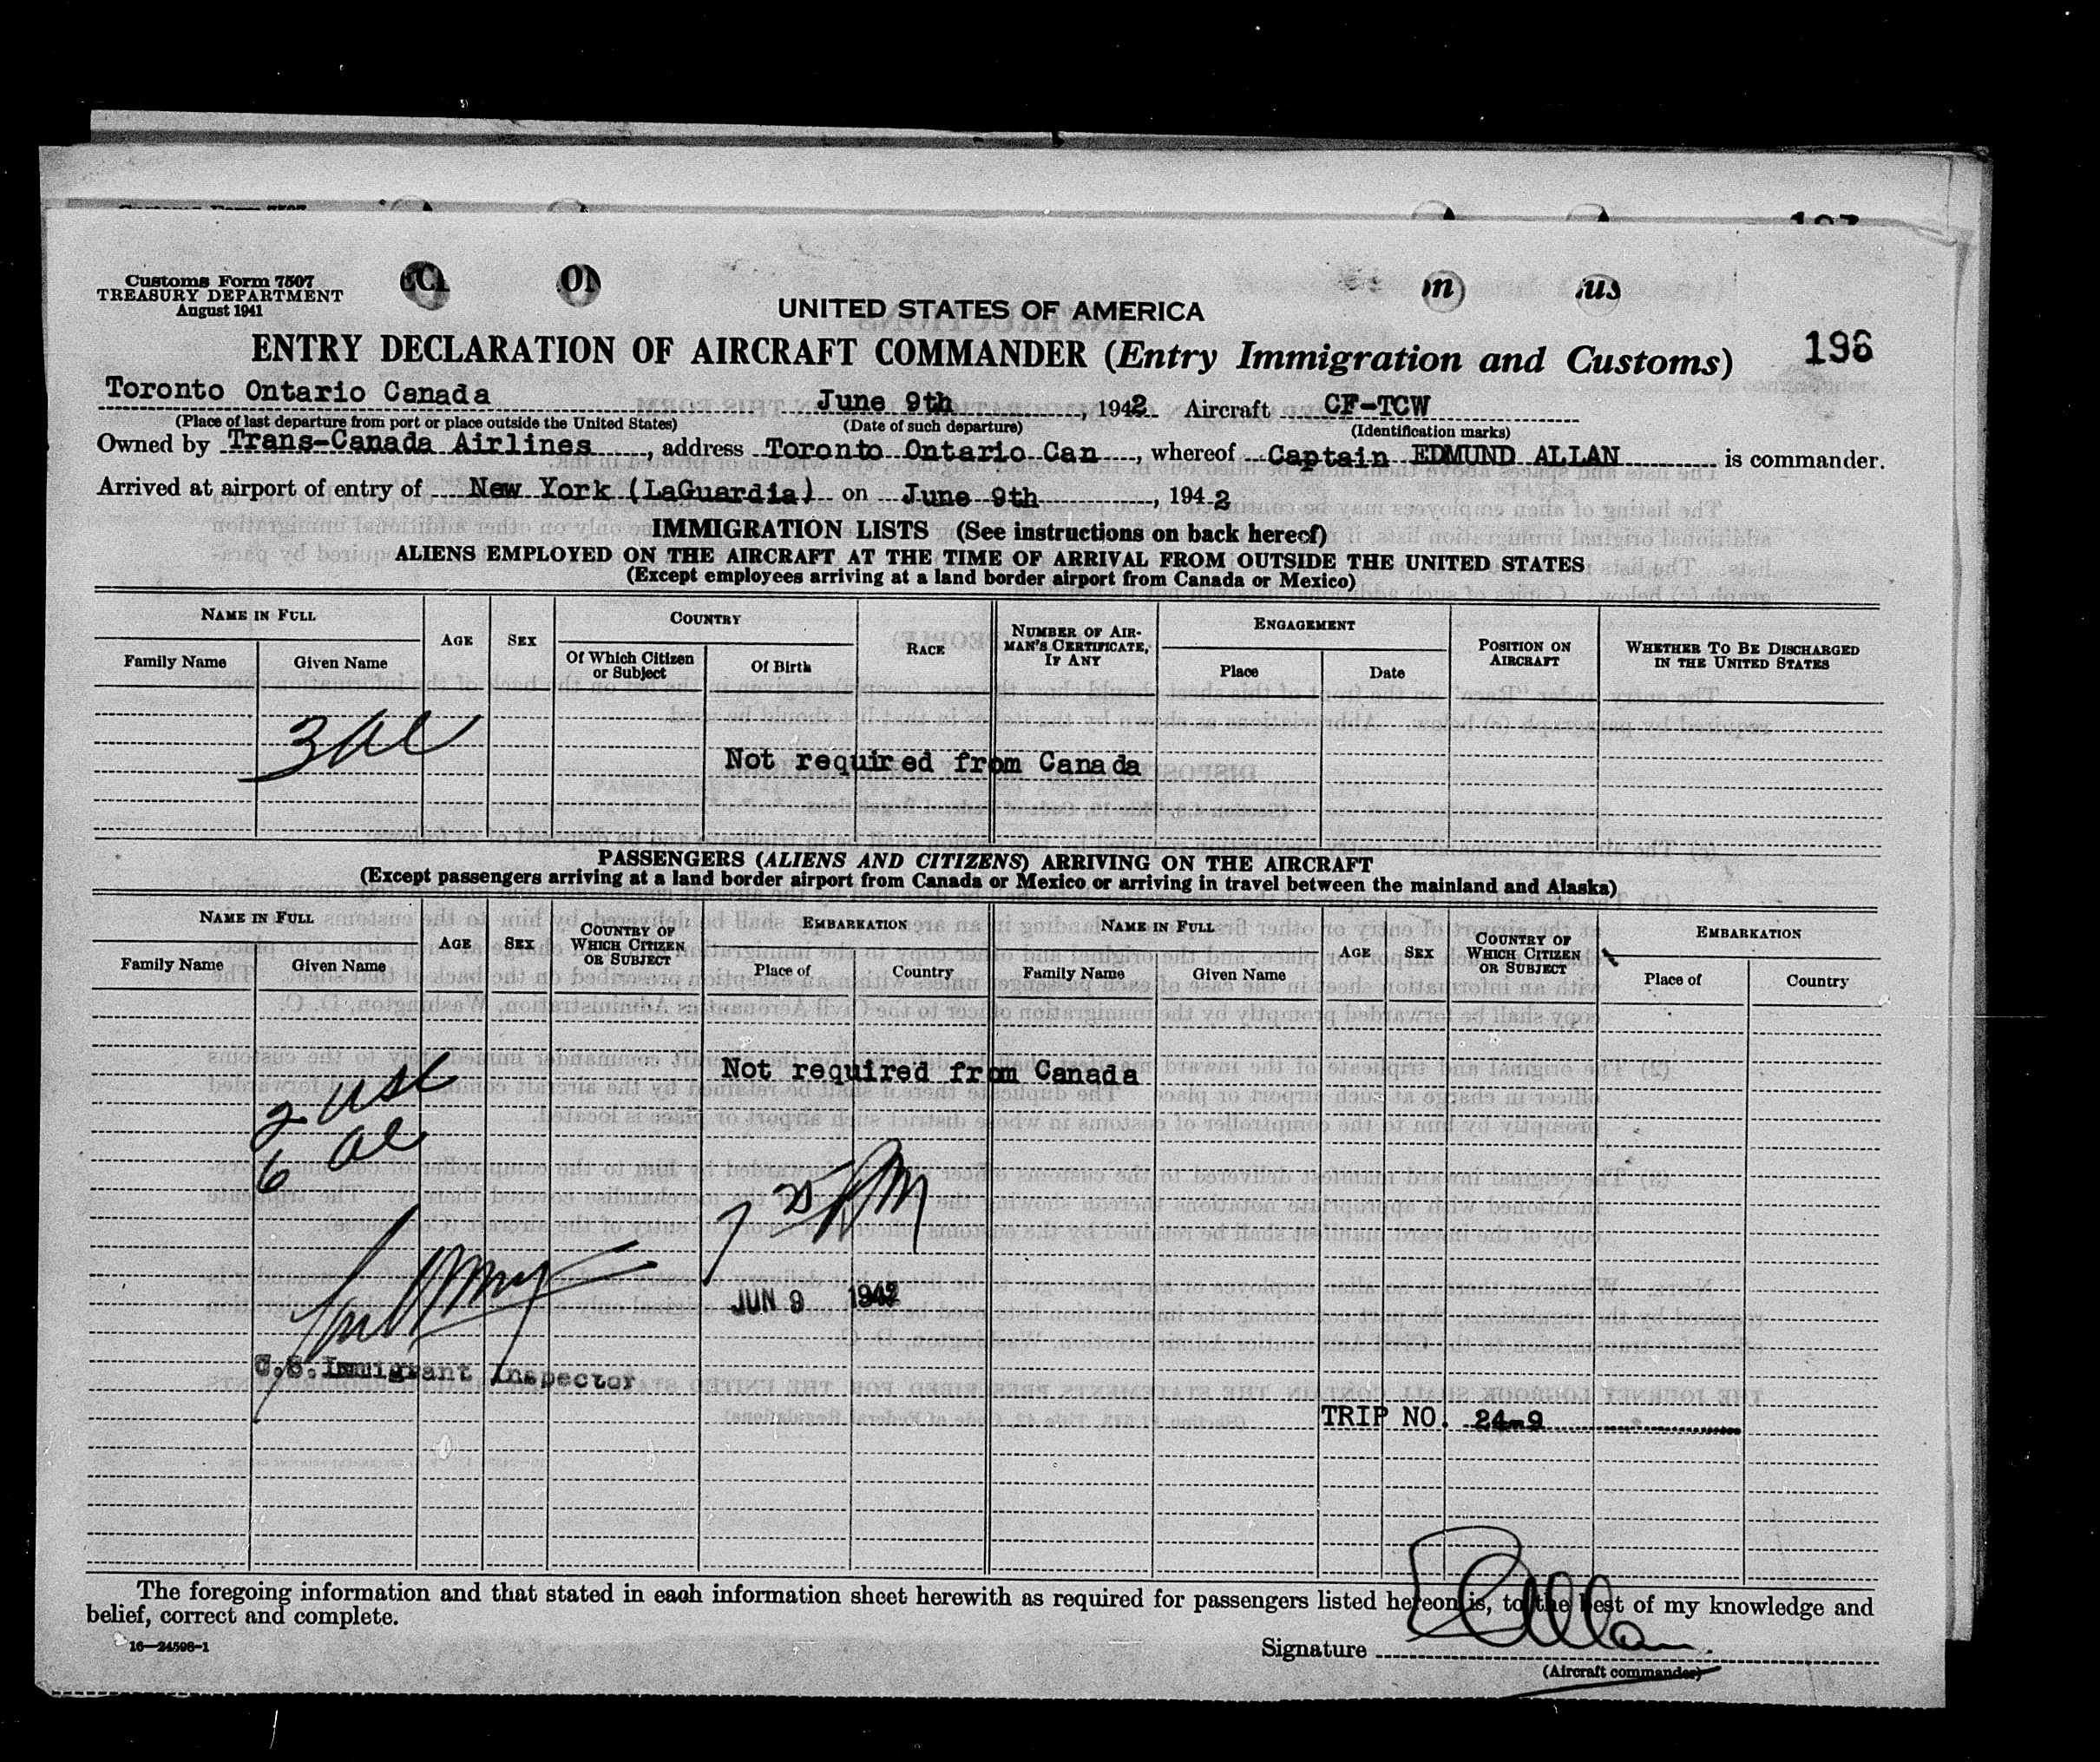 Customs Form 7507
TREASURY DEPARTMENT
August 1941
UNITED STATES OF AMERICA
196
ENTRY DECLARATION OF AIRCRAFT COMMANDER (Entry Immigration and Customs)
Toronto Ontario Canada June 9th, 1942 Aircraft CF-TCW
(Place of last departure from port or place outside the United States) (Date of such departure) (Identification marks)
Owned by Trans-Canada Airlines, address Toronto Ontario Can, whereof Captain EDMUND ALLAN is commander.
Arrived at airport of entry of New York (LaGuardia) on June 9th, 1942
IMMIGRATION LISTS (See instructions on back hereof)
ALIENS EMPLOYED ON THE AIRCRAFT AT THE TIME OF ARRIVAL FROM OUTSIDE THE UNITED STATES
(Except employees arriving at a land border airport from Canada or Mexico)
NAME IN FULL AGE SEX COUNTRY RACE NUMBER OF AIRMAN'S CERTIFICATE, IF ANY ENGAGEMENT POSITION ON AIRCRAFT WHETHER TO BE DISCHARGED IN THE UNITED STATES
Family Name Given Name Of Which Citizen or Subject Of Birth Place Date
3 al
Not required from Canada
PASSENGERS (ALIENS AND CITIZENS) ARRIVING ON THE AIRCRAFT
(Except passengers arriving at a land border airport from Canada or Mexico or arriving in travel between the mainland and Alaska)
NAME IN FULL AGE SEX COUNTRY OF WHICH CITIZEN OR SUBJECT EMBARKATION NAME IN FULL AGE SEX COUNTRY OF WHICH CITIZEN OR SUBJECT EMBARKATION
Family Name Given Name Place of Country Family Name Given Name Place of Country
Not required from Canada
2 usc
6 al
7 25 PM
JUN 9 1942
U.S. Immigrant Inspector
TRIP NO. 24-9
The foregoing information and that stated in each information sheet herewith as required for passengers listed hereon is, to the best of my knowledge and
belief, correct and complete.
16—24598-1
Signature E Allan
(Aircraft commander)